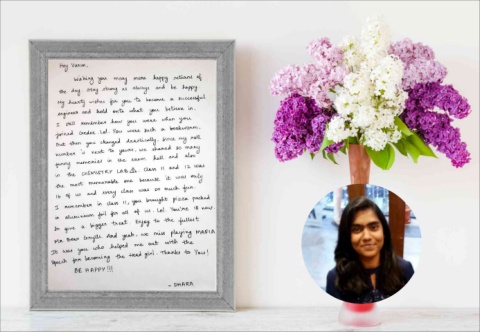 Hey Varun,
Wishing you many more happy returns of
the day. Stay strong as always and be happy
My hearty wishes for you to become a successful
engineer and hold onto what you believe in.
I still remember how you were when you
joined Lol. You were such a bookworm.
But then you changed drastically. Since my roll
number is next to yours, we shared so many
funny memories in the exam hall and also
in the CHEMISTRY LAB Class 11 and 12 was
the most memorable one because it was only
16 of us and every class was so much fun.
I remember in class 11, you brought pizza packed
in aluminium foil for all of us. Lol. You're 18 now.
So give a bigger treat. Enjoy to the fullest
And yeah, we miss playing MAFIA
It was you who helped me out with the
speech for becoming the head girl. Thanks to You!
BE HAPPY!!!
- DHARA